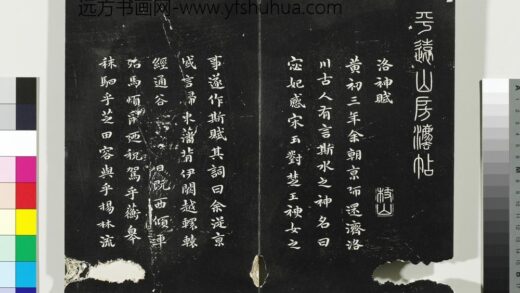 远方书画网-www.yfshuhua.com
平遠山房灋帖
洛神賦
枝山
黄初三年余朝京師還濟洛
川古人有言斯水之神名曰
宓妃感宋玉對楚王神女之
事遂作斯賦其詞曰余從京
域言歸東藩背伊闕越轘轅
經通谷 日既西傾車
殆馬煩爾迺税駕乎蘅皋
秣駟乎芝田容與乎楊林流